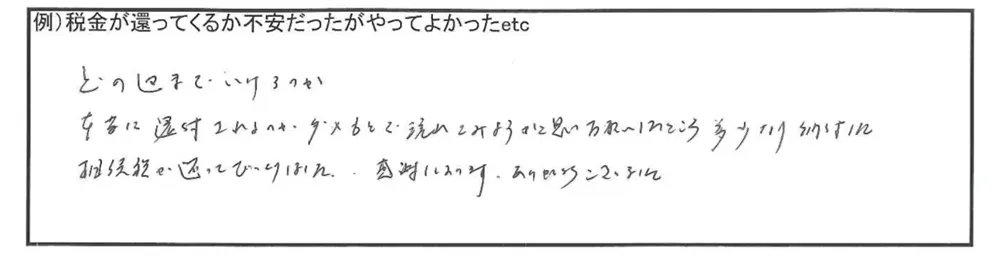 例）税金が還ってくるか不安だったがやってよかったetc
どの辺まで いけるのか
本当に 還付されるのか ダメもとで 流れてみようかと思い お願いしたところ 多少なり
相続税が 還ってびっくりしました. 感謝しております. ありがとうございました